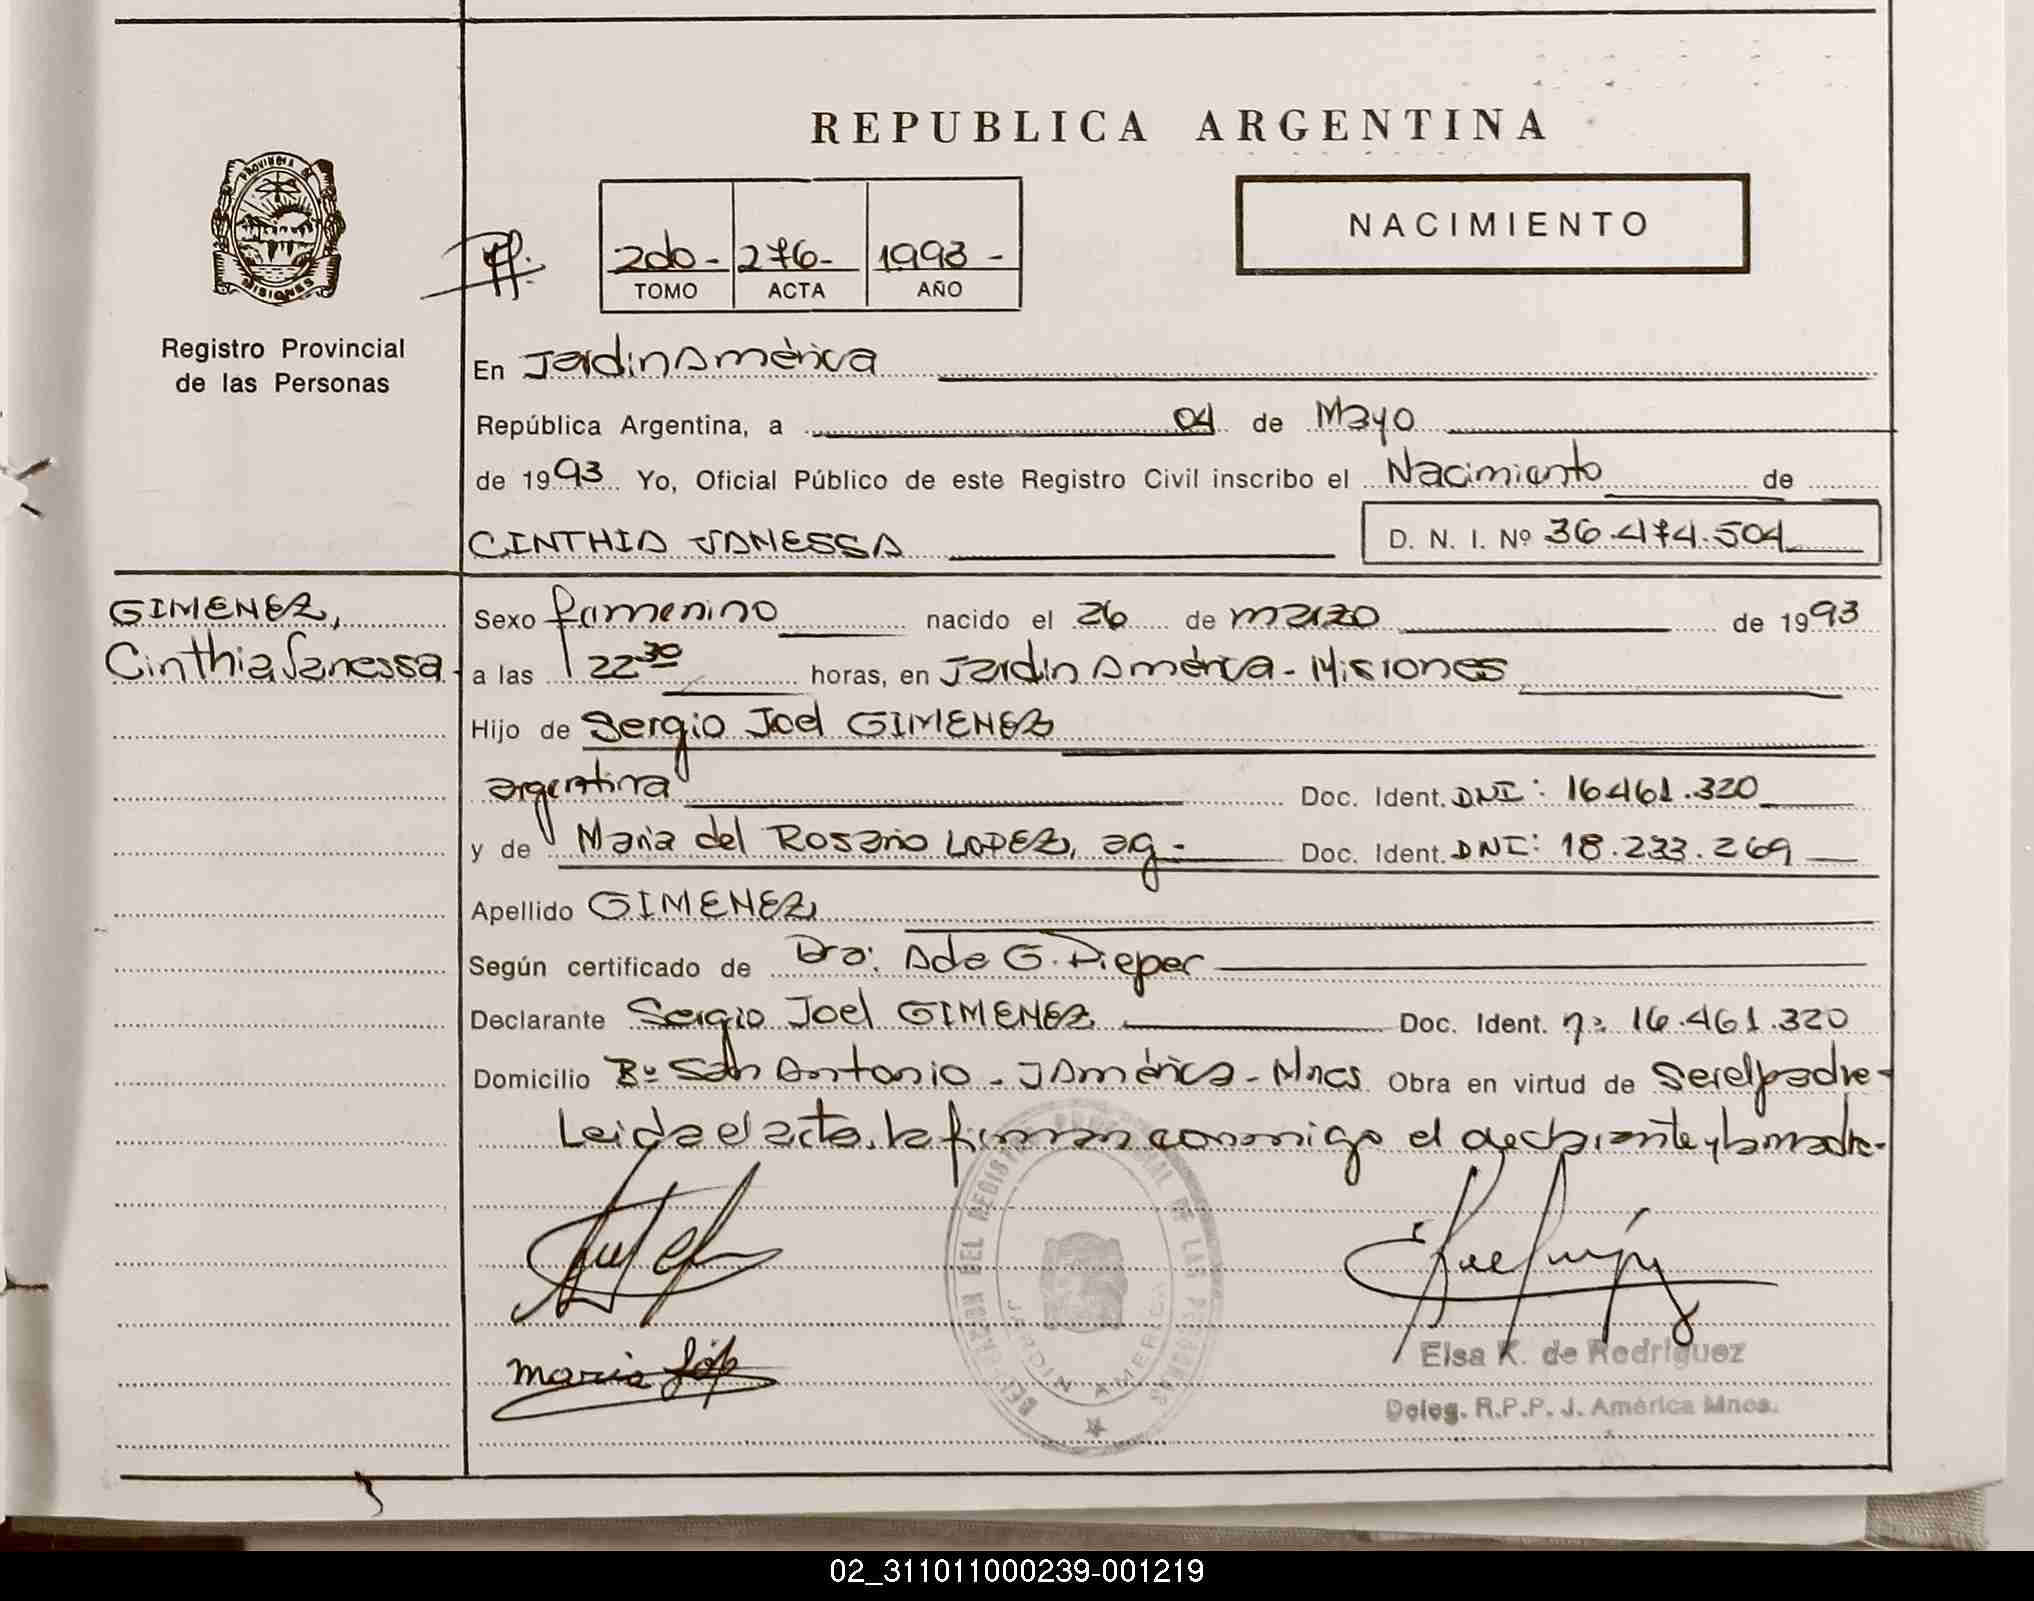 REPUBLICA ARGENTINA
PROVINCIA DE
MISIONES
Registro Provincial
de las Personas
2do - 276- 1993 -
TOMO ACTA AÑO
NACIMIENTO
En Jardin America
República Argentina, a 04 de Mayo
de 1993 Yo, Oficial Público de este Registro Civil inscribo el Nacimiento de
CINTHIA VANESSA D. N. I. Nº 36.474.504
GIMENEZ,
Cinthia Vanessa
Sexo femenino nacido el 26 de marzo de 1993
a las 22 30 horas, en Jardin América - Misiones
Hijo de Sergio Joel GIMENEZ
argentina Doc. Ident. DNI: 16461.320
y de Maria del Rosario LOPEZ, ag - Doc. Ident. DNI: 18.233.269
Apellido GIMENEZ
Según certificado de Dra: Ade G. Pieper
Declarante Sergio Joel GIMENEZ Doc. Ident. nº 16.461.320
Domicilio Bº San Antonio - J América - Mnes Obra en virtud de ser el padre -
Leida el acta, la firman conmigo el declarante y la madre -
DEL REGISTRO PROVINCIAL DE LAS PERSONAS
JARDIN AMERICA
Maria Lóp
Elsa K. de Rodriguez
Deleg. R.P.P. J. América Mnes.
02_311011000239-001219